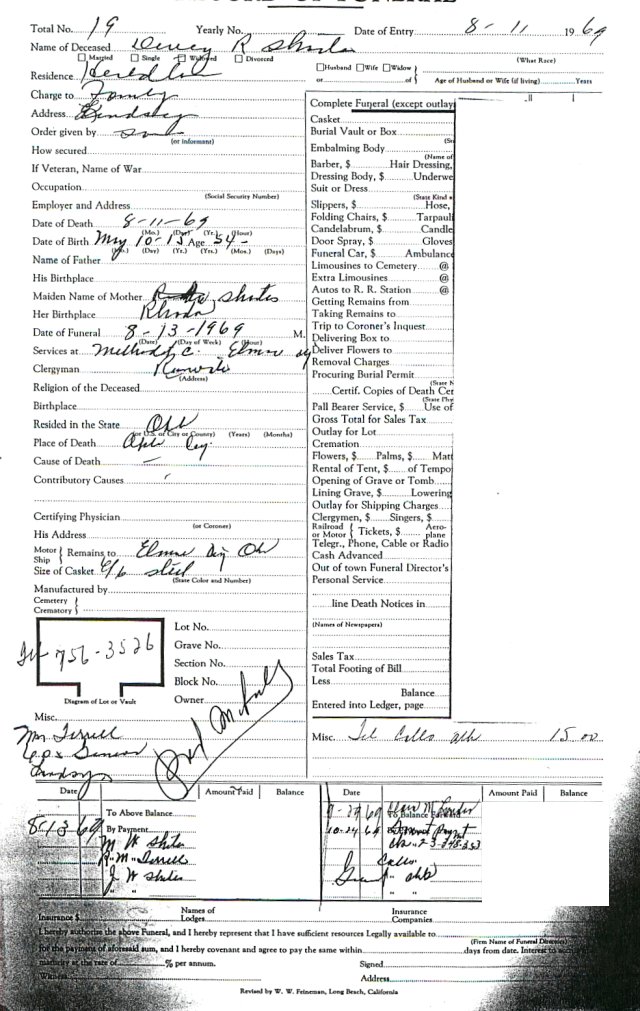 RECORD OF FUNERAL
Total No. 19 Yearly No. Date of Entry 8-11 1969
Name of Deceased Dewey R Shiles
Married Single Widowed Divorced
(What Race)
Residence
Husband Wife Widow
or of
Age of Husband or Wife (if living) Years
Charge to Family
Address Lindsay
Order given by son
(or informant)
How secured
If Veteran, Name of War
Occupation
(Social Security Number)
Employer and Address
Date of Death 8-11-69
(Mo.) (Day) (Yr.) (Hour)
Date of Birth May 10-15 Age 54-
(Mo.) (Day) (Yr.) (Yrs.) (Mos.) (Days)
Name of Father
His Birthplace
Maiden Name of Mother Shiles
Her Birthplace Rhoda
Date of Funeral 8-13-1969 M.
(Date) (Day of Week) (Hour)
Services at Methodist C. Elmore
Clergyman
(Address)
Religion of the Deceased
Birthplace
Resided in the State
(or U.S. or City or County) (Years) (Months)
Place of Death
Cause of Death —
Contributory Causes
Certifying Physician
(or Coroner)
His Address
Motor
Ship
Remains to Elmore City Okl
Size of Casket 6/6 steel
(State Color and Number)
Manufactured by
Cemetery
Crematory
756-3526
Diagram of Lot or Vault
Lot No.
Grave No.
Section No.
Block No.
Owner
Misc.
Mrs Terrell
Lindsay
Complete Funeral (except outlay
Casket
Burial Vault or Box
Embalming Body
(Name of
Barber, $ Hair Dressing,
Dressing Body, $ Underwe
Suit or Dress
(State Kind
Slippers, $ Hose,
Folding Chairs, $ Tarpauli
Candelabrum, $ Candle
Door Spray, $ Gloves
Funeral Car, $ Ambulanc
Limousines to Cemetery @
Extra Limousines @
Autos to R. R. Station @
Getting Remains from
Taking Remains to
Trip to Coroner's Inquest
Delivering Box to
Deliver Flowers to
Removal Charges
Procuring Burial Permit
(State N
Certif. Copies of Death Cer
(State Phy
Pall Bearer Service, $ Use of
Gross Total for Sales Tax
Outlay for Lot
Cremation
Flowers, $ Palms, $ Matt
Rental of Tent, $ of Tempo
Opening of Grave or Tomb
Lining Grave, $ Lowering
Outlay for Shipping Charges
Clergymen, $ Singers, $
Railroad
or Motor
Tickets, $ Aero-
plane
Telegr., Phone, Cable or Radio
Cash Advanced
Out of town Funeral Director's
Personal Service
line Death Notices in
(Names of Newspapers)
Sales Tax
Total Footing of Bill
Less
Balance
Entered into Ledger, page
Misc. Tel Calls 15.00
Date Amount Paid Balance Date Amount Paid Balance
To Above Balance
8-13 69 By Payment
M W Shiles
R M Terrell
J W Shiles
" "
9-29 69 To Balance Forward
10-24 69
Calls
" "
Insurance $ Names of
Lodges Insurance
Companies
I hereby authorize the above Funeral, and I hereby represent that I have sufficient resources Legally available to
(Firm Name of Funeral Directors)
for the payment of aforesaid sum, and I hereby covenant and agree to pay the same within days from date. Interest to
maturity at the rate of % per annum. Signed
Witness Address
Revised by W. W. Feineman, Long Beach, California